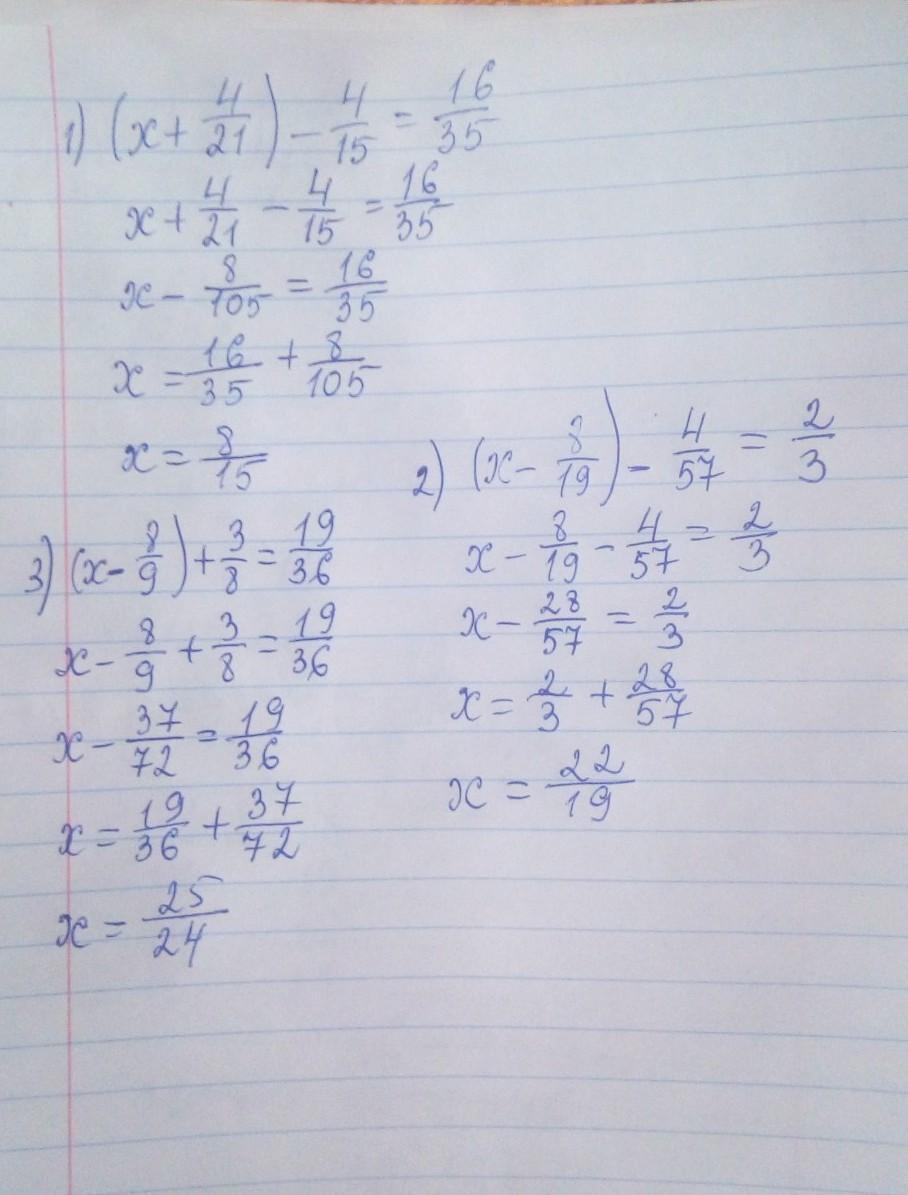 1) (x + 4/21) - 4/15 = 16/35
x + 4/21 - 4/15 = 16/35
x - 8/105 = 16/35
x = 16/35 + 8/105
x = 8/15
2) (x - 8/19) - 4/57 = 2/3
x - 8/19 - 4/57 = 2/3
x - 28/57 = 2/3
x = 2/3 + 28/57
x = 22/19
3) (x - 8/9) + 3/8 = 19/36
x - 8/9 + 3/8 = 19/36
x - 37/72 = 19/36
x = 19/36 + 37/72
x = 25/24